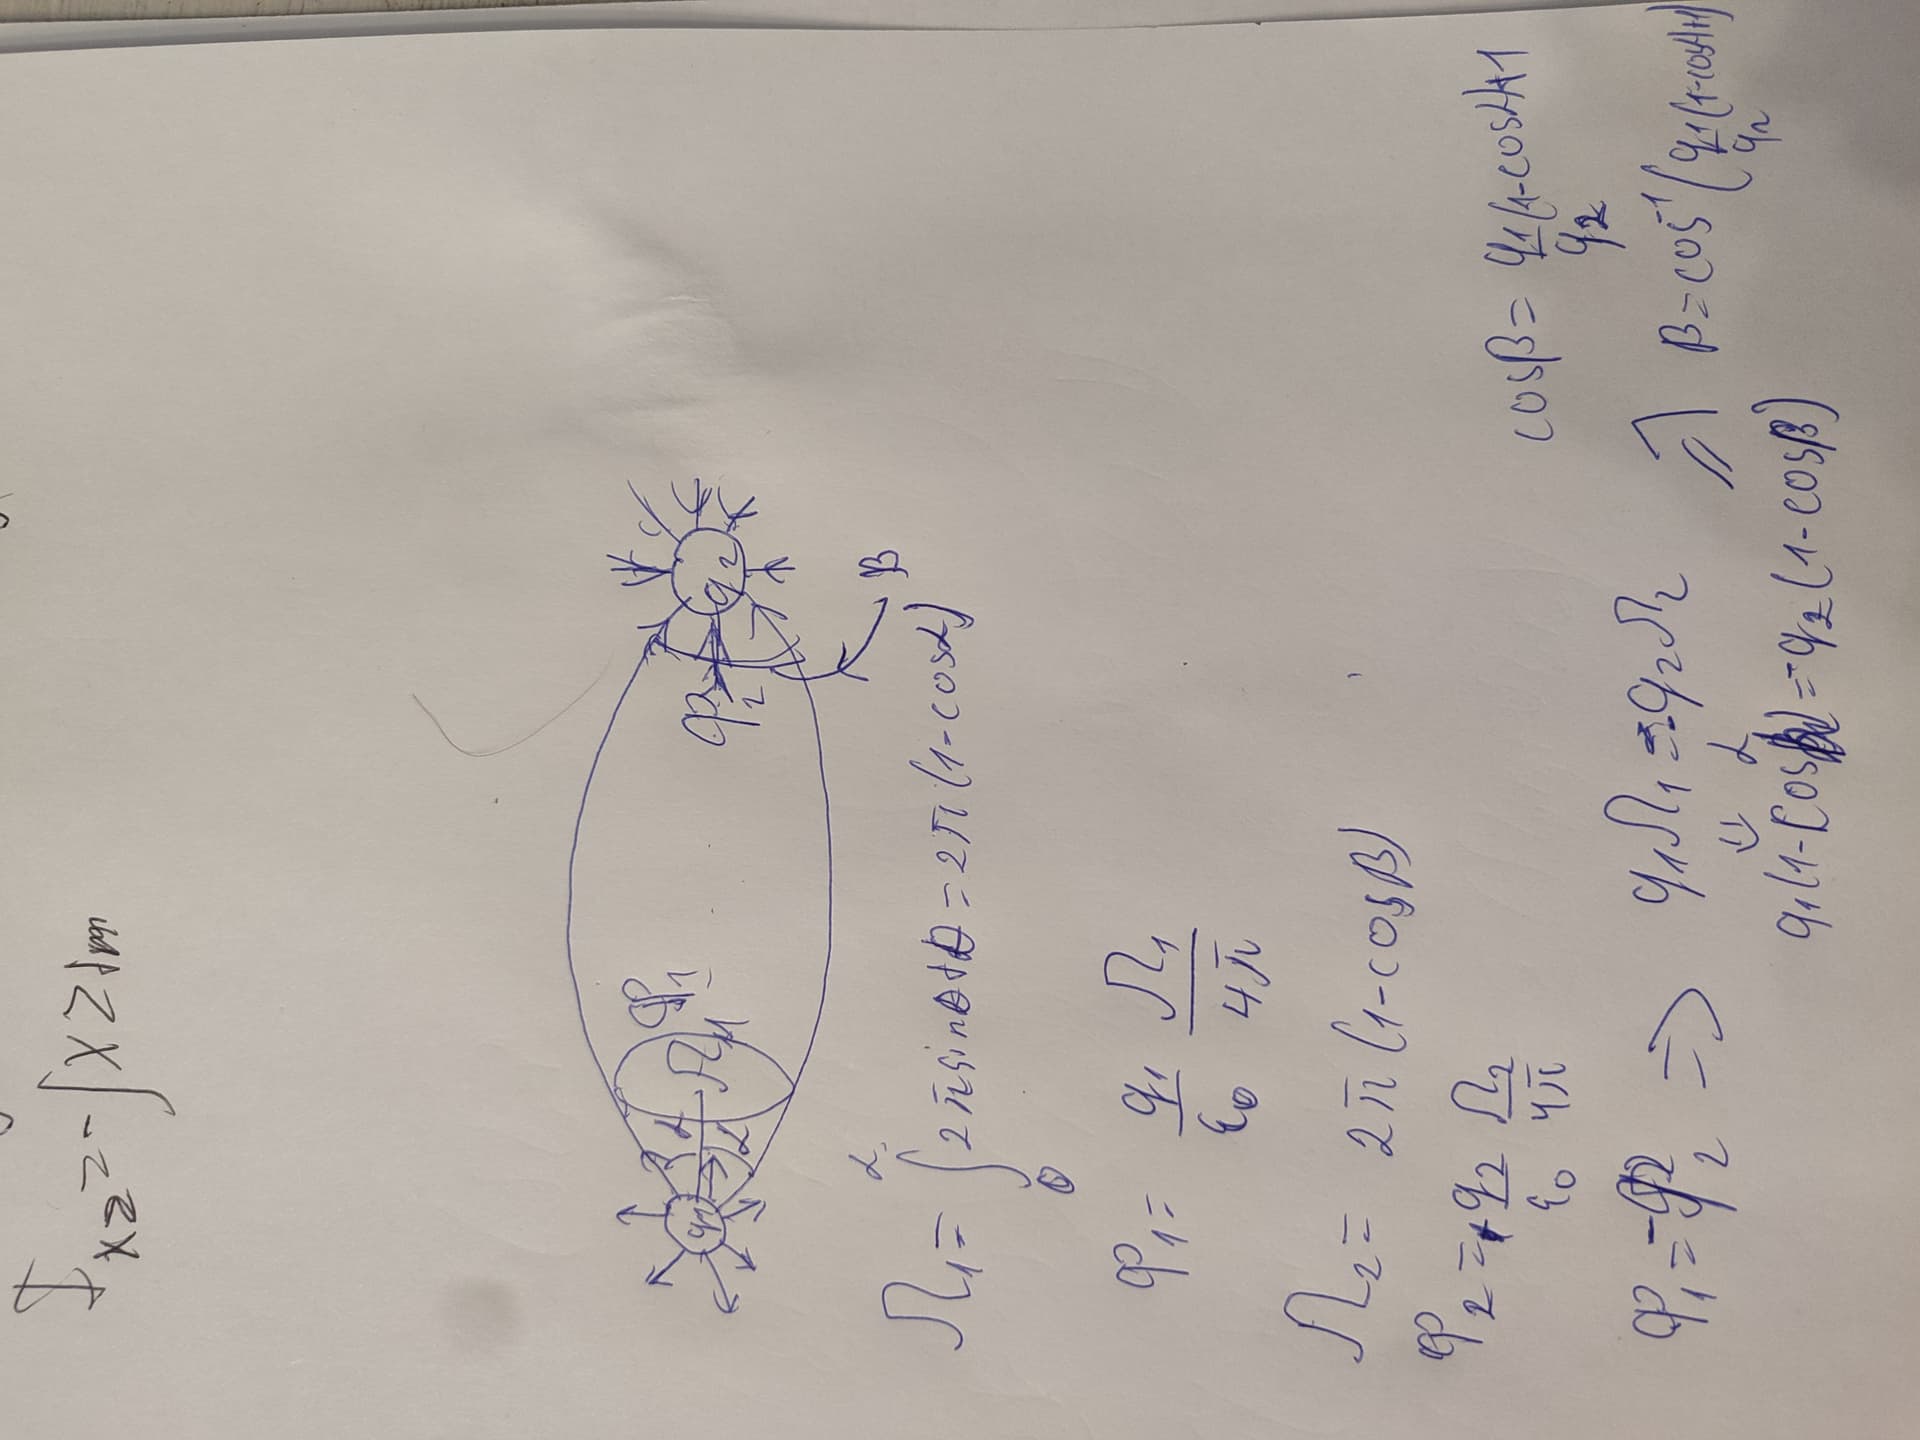 J_xz = -∫xzdm
q1
α
α
Ω1
φ1
φ2
q2
β
Ω1 = ∫_0^α 2πsinθdθ = 2π(1-cosα)
φ1 = q1/ε0 Ω1/4π
Ω2 = 2π(1-cosβ)
φ2 = q2/ε0 Ω2/4π
φ1 = -φ2 ⇒ q1Ω1 = -q2Ω2
⇓
q1(1-cosα) = -q2(1-cosβ)
⇒
cosβ = q1/q2(1-cosα)+1
β = cos⁻¹(q1/q2(1-cosα)+1)